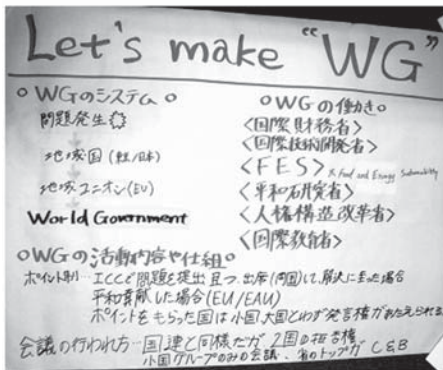 Let's make "WG"
○WGのシステム○
問題発生
地域国(軽/日本)
地域ユニオン(EU)
World Government
○WGの働き○
<国際財務省>
<国際技術開発省>
<FES> ※Food and Energy Sustainability
<平和研究省>
<人権構造改革省>
<国際教育省>
○WGの活動内容や仕組○
ポイント制...ICCで問題を提出且つ、出席(両国)して、解決に至った場合
平和貢献した場合(EU/EAU)
ポイントをもらった国は小国、大国とわず発言権があたえられる
会議の行われ方...国連と同様だが、2国の拒否権
小国グループのみの会議、省のトップが